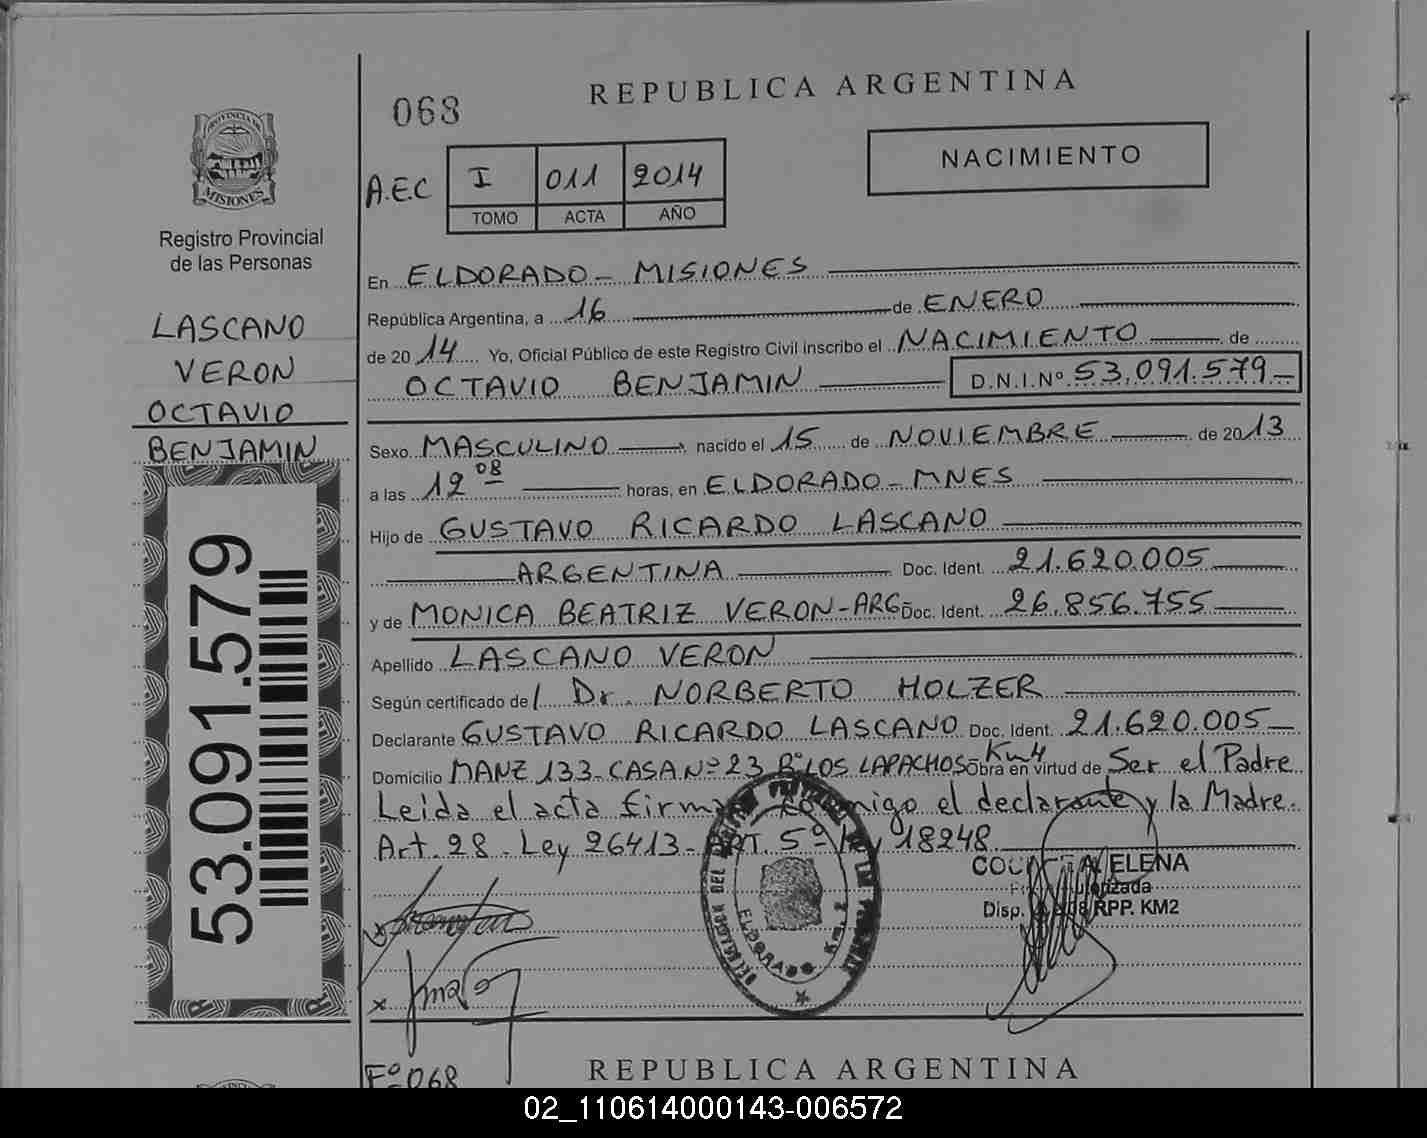 REPUBLICA ARGENTINA
068
NACIMIENTO
A.E.C I 011 2014
TOMO ACTA AÑO
PROVINCIA DE
MISIONES
Registro Provincial
de las Personas
LASCANO
VERON
OCTAVIO
BENJAMIN
53.091.579
En ELDORADO - MISIONES
República Argentina, a 16 de ENERO
de 2014 Yo, Oficial Público de este Registro Civil inscribo el NACIMIENTO de
OCTAVIO BENJAMIN D.N.I.Nº 53.091.579
Sexo MASCULINO nacido el 15 de NOVIEMBRE de 2013
a las 12 08 horas, en ELDORADO - MNES
Hijo de GUSTAVO RICARDO LASCANO
ARGENTINA Doc. Ident. 21.620.005
y de MONICA BEATRIZ VERON-ARG- Doc. Ident. 26.856.755
Apellido LASCANO VERON
Según certificado de / Dr. NORBERTO HOLZER
Declarante GUSTAVO RICARDO LASCANO Doc. Ident. 21.620.005
Domicilio MANZ 133-CASA Nº 23 Bº LOS LAPACHOS Km 4 Obra en virtud de Ser el Padre
Leida el acta firma conmigo el declarante y la Madre.
Art. 28 - Ley 26413 - ART. 5º Ley 18248
ELENA
Disp. RPP. KM2
ELDORADO Km. 2
Fº 068
REPUBLICA ARGENTINA
02_110614000143-006572